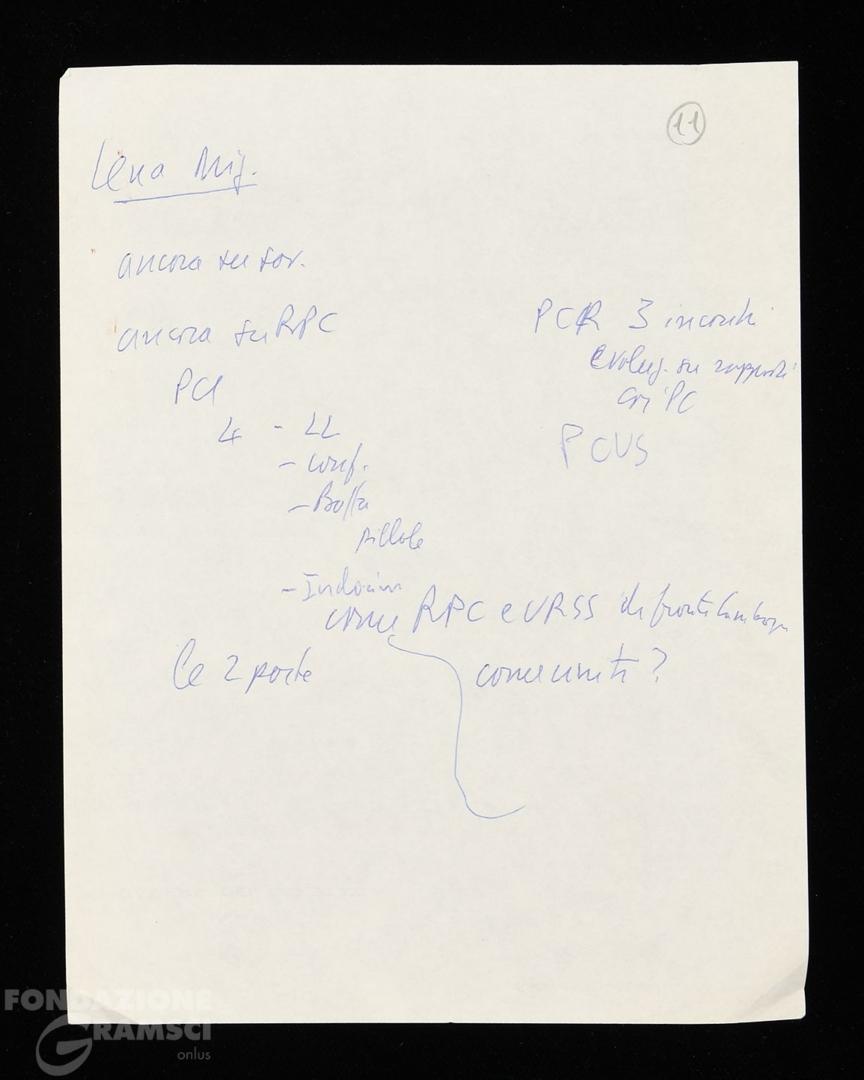 11
ancora su sov.
ancora su RPC
PCI
4 - LL
- conf.
- Boffa
pillole
- Indocin
come RPC e URSS di fronte
le 2 porte
PCR 3 incontri
evoluz. su rapporti
con PC
PCUS
comunisti?
FONDAZIONE
GRAMSCI
onlus